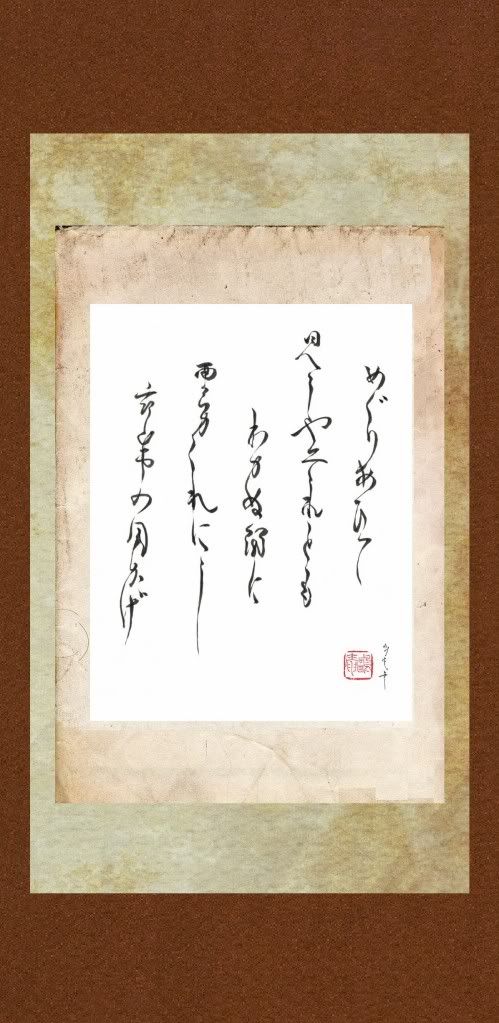 めぐりあひて
見しやそれとも
わかぬ間に
雲かくれにし
夜半の月かげ